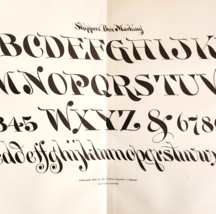 Shippers' Box Marking
BCDEFGHIJK
MNOPQRSTUV
345 WXYZ & 678
deffghijklmnopqrstuvw